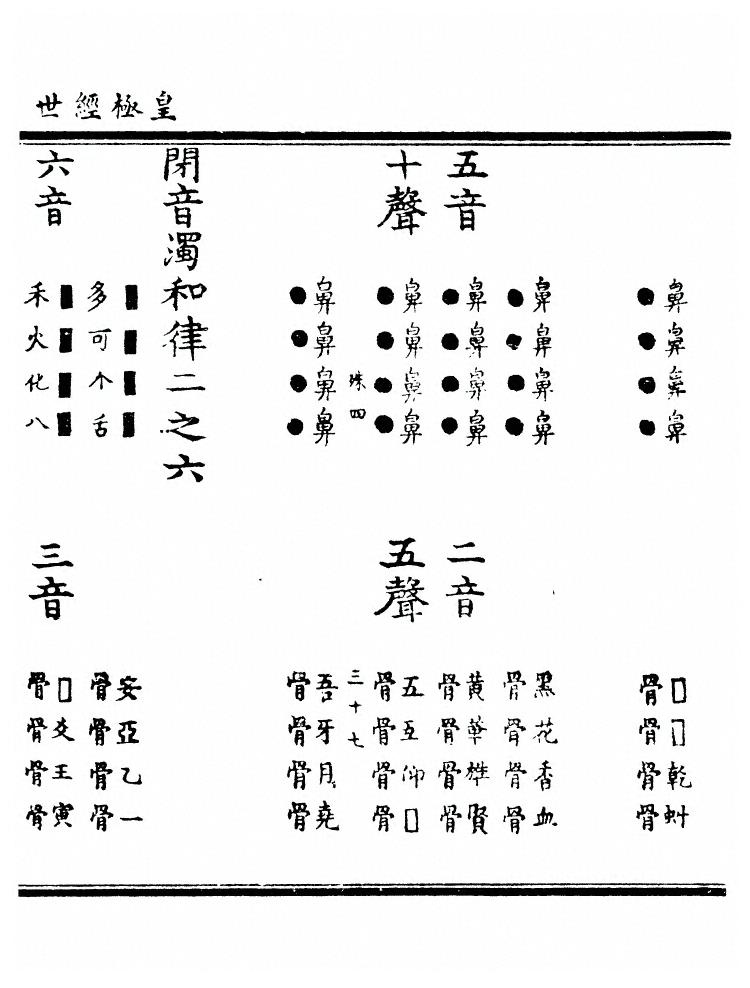 皇極經世
鼻鼻鼻鼻
●●●●
鼻鼻鼻鼻
●●●●
五音
鼻鼻鼻鼻
●●●●
十聲
鼻鼻鼻鼻
●●●●
殊四
鼻鼻鼻鼻
●●●●
閉音濁和律二之六
■■■■
多可个舌
六音
■■■■
禾火化八
□□乾虯
骨骨骨骨
黑花香血
骨骨骨骨
二音
黃華雄賢
骨骨骨骨
五聲
五瓦仰□
骨骨骨骨
三十七
吾牙月堯
骨骨骨骨
安亞乙一
骨骨骨骨
三音
□爻王寅
骨骨骨骨